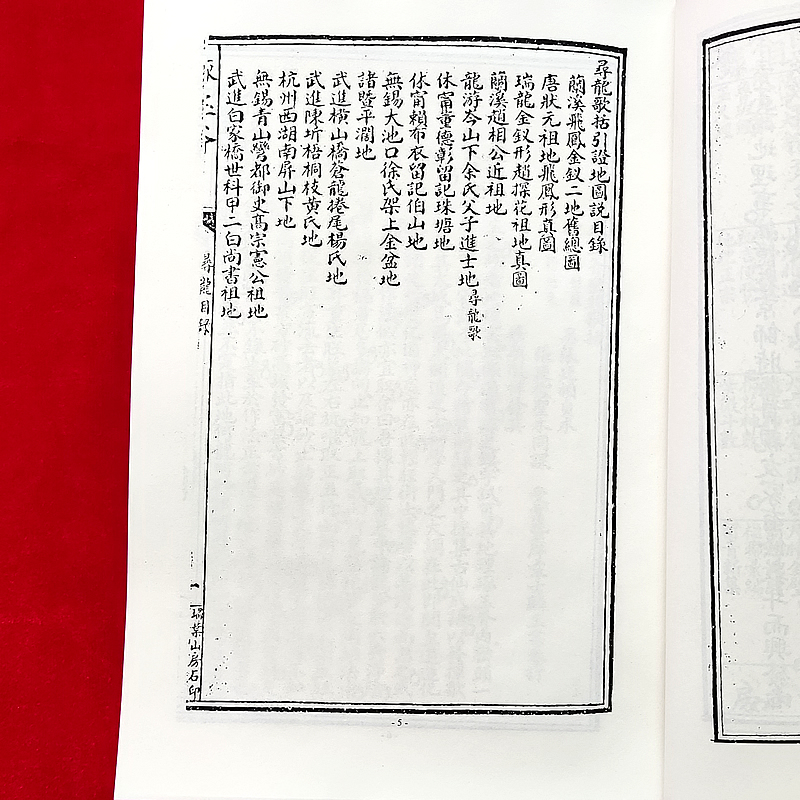 尋龍歌括引證地圖説目錄
蘭溪飛鳳金釵二地舊總圖
唐狀元祖地飛鳳形真圖
瑞龍金釵形趙探花祖地真圖
蘭溪趙相公近祖地
龍游岑山下余氏父子進士地 尋龍歌
休甯童德彰留記珠塘地
休甯賴布衣留記伯山地
無錫大池口徐氏架上金盆地
諸暨平濶地
武進橫山橋倉龍捲尾楊氏地
武進陳圻梧桐枝黃氏地
杭州西湖南屏山下地
無錫青山彎都御史髙宗憲公祖地
武進白家橋世科甲二白尚書祖地
尋龍目錄
一
埽葉山房石印
- 5 -